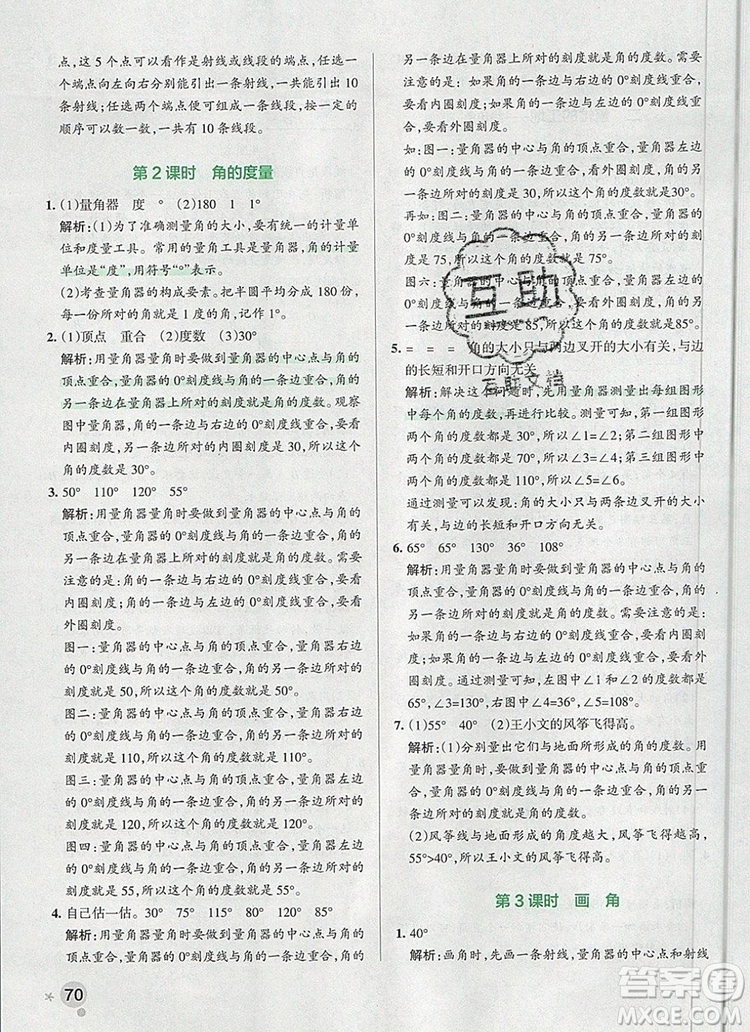 点,这 5 个点可以看作是射线或线段的端点,任选一
个端点向左向右分别能引出一条射线,一共能引出 10
条射线;任选两个端点便可组成一条线段,按一定的
顺序可以数一数,一共有 10 条线段。
第 2 课时 角的度量
1. (1)量角器 度 ° (2)180 1 1°
解析:(1)为了准确测量角的大小,要有统一的计量单
位和度量工具。常用的量角工具是量角器,角的计量
单位是“度”,用符号“°”表示。
(2)考查量角器的构成要素。把半圆平均分成 180 份,
每一份所对的角的大小就是 1 度的角,记作 1°。
2. (1)顶点 重合 (2)度数 (3)30°
解析:用量角器量角时要做到量角器的中心点与角的
顶点重合,量角器的 0°刻度线与角的一条边重合,角的
另一条边在量角器上所对的刻度就是角的度数。观察
图中量角器与角的一条边重合的是内圈刻度,要看
内圈刻度,内圈刻度中角的另一条边所对的刻度是
30,所以角的度数是 30°。
3. 50° 110° 120° 55°
解析:用量角器量角时要做到量角器的中心点与角的
顶点重合,量角器的 0°刻度线与角的一条边重合,角的
另一条边在量角器上所对的刻度就是角的度数。需要
注意的是:如果角的一条边与右边的 0°刻度线重合,看
内圈刻度;如果角的一条边与左边的 0°刻度线重合,看
外圈刻度。
图一:量角器的中心点与角的顶点重合,量角器右边
的 0°刻度线与角的一条边重合,角的另一条边所对的
刻度就是 50,所以这个角的度数就是 50°。
图二:量角器的中心点与角的顶点重合,量角器右边
的 0°刻度线与角的一条边重合,角的另一条边所对的
刻度就是 110,所以这个角的度数就是 110°。
图三:量角器的中心点与角的顶点重合,量角器左边
的 0°刻度线与角的一条边重合,角的另一条边所对的
刻度就是 120,所以这个角的度数就是 120°。
图四:量角器的中心点与角的顶点重合,量角器左边
的 0°刻度线与角的一条边重合,角的另一条边所对的
刻度就是 55,所以这个角的度数就是 55°。
4. 自己估一估。30° 75° 90° 115° 135° 85°
解析:用量角器量角时要做到量角器的中心点与角的
顶点重合,量角器的 0°刻度线与角的一条边重合,角的
70
另一条边在量角器上所对的刻度就是角的度数。需要
注意的是:如果角的一条边与右边的 0°刻度线重合,看
内圈刻度;如果角的一条边与左边的 0°刻度线重合,要
看外圈刻度。
如:图一:量角器的中心与角的顶点重合,左边的 0°刻
度线与角的一条边重合,要看外圈刻度,角的另一条边
所对的刻度是30,所以这个角的度数就是 30°。
再如:图二:量角器的中心与角的顶点重合,右边的 0°
刻度线与角的一条边重合,角的另一条边所对的刻度
是 75,所以这个角的度数就是 75°。
图六:量角器的中心与角的顶点重合,左边的 0°刻度线
与角的一条边重合,要看外圈刻度,角的另一条边所对
的刻度是85,所以这个角的度数就是85°。
5. = = = 角的大小只与两边叉开的大小有关,与边
的长短和开口方向无关
解析:解决这个问题时,先用量角器测量出每组图形
中每个角的度数,再进行比较。测量可知,第一组图形
两个角的度数都是 30°,所以∠1=∠2;第二组图形中
两个角的度数都是 60°,所以∠1=∠2;第三组图形中
两个角的度数都是 45°,所以∠1=∠2。
通过测量可以发现:角的大小只与两条边叉开的大小
有关,与边的长短和开口方向无关。
6. 65° 65° 130° 36° 108°
解析:用量角器量角时要做到量角器的中心点与角的
顶点重合,量角器的 0°刻度线与角的一条边重合,角的
另一条边在量角器上所对的刻度就是角的度数。需要
注意的是:如果角的一条边与右边的 0°刻度线重合,看
内圈刻度;如果角的一条边与左边的 0°刻度线重合,看
外圈刻度。通过测量可知,左图中∠1 和∠2 是 65°,
∠3=130°;右图中∠4=36°,∠5=108°。
7. (1)55° 40° (2)王小文的风筝飞得高。
解析:(1)分别量出它们与地面所形成的角的度数。用
量角器量角时要做到量角器的中心点与角的顶点重
合,量角器的 0°刻度线与角的一条边重合,角的另一条
边在量角器上所对的刻度就是角的度数。
(2)风筝线与地面形成的角度越大,风筝飞得越高,
55°>40°,所以王小文的风筝飞得高。
第 3 课时 画 角
1. 40°
解析:画角时,先画一条射线,量角器的中心点和射线
互助
互助文档
答案圈
MXQE.COM